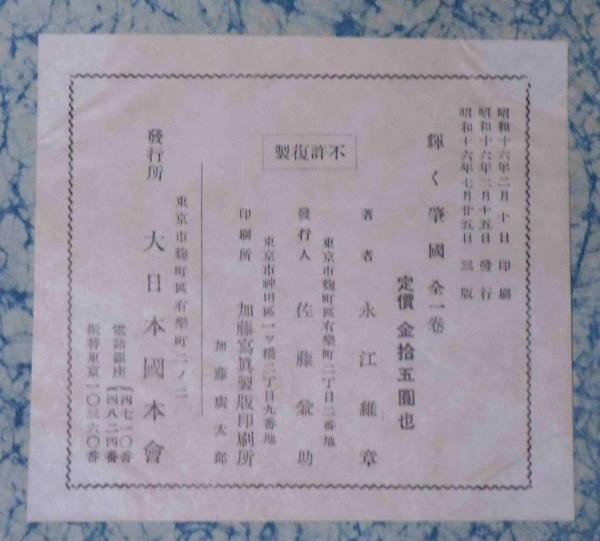 昭和十六年二月十日 印刷
昭和十六年二月十五日 發行
昭和十六年七月廿五日 三版
輝く肇國 全一卷
定價 金拾五圓也
不許復製
著者 永江維章
東京市麴町區有樂町二丁目二番地
發行人 佐藤彙助
東京市神田區一ツ橋二丁目九番地
印刷所 加藤寫眞製版印刷所
加藤廣太郎
東京市麴町區有樂町二ノ二
發行所 大日本國本會
電話銀座(四七一〇番
(四八二四番
振替東京一〇三六〇番